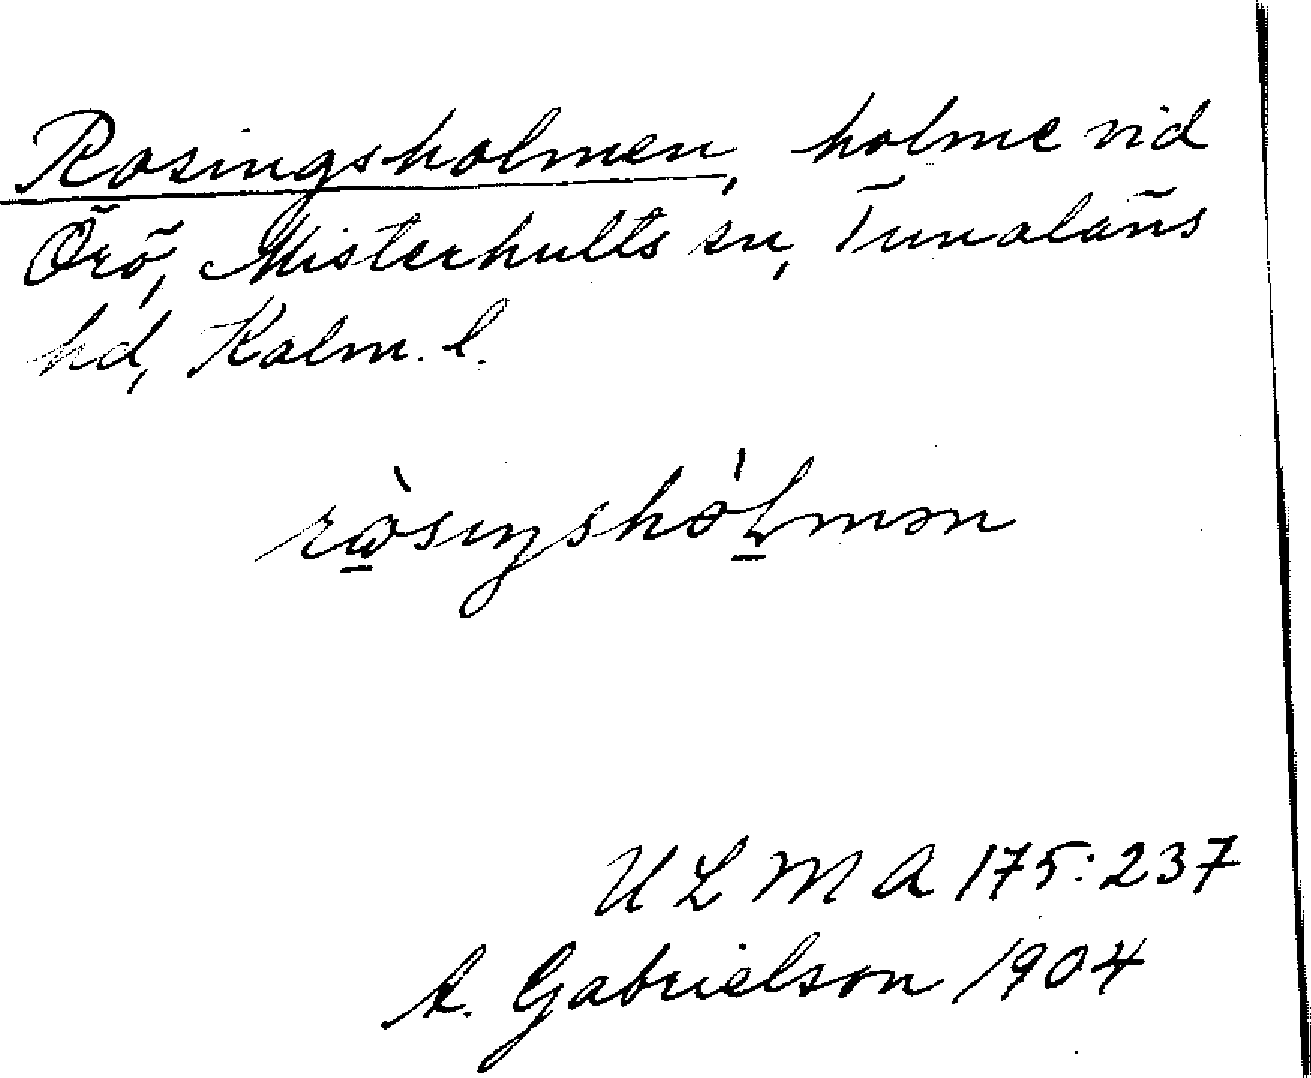 Rosingsholmen, holme vid
Örö, Misterhults sn, Tunaläns
hd, Kalm. l.
rὼ̲siŋshó̵l̲mən
U L M A 175:237
A. Gabrielson 1904